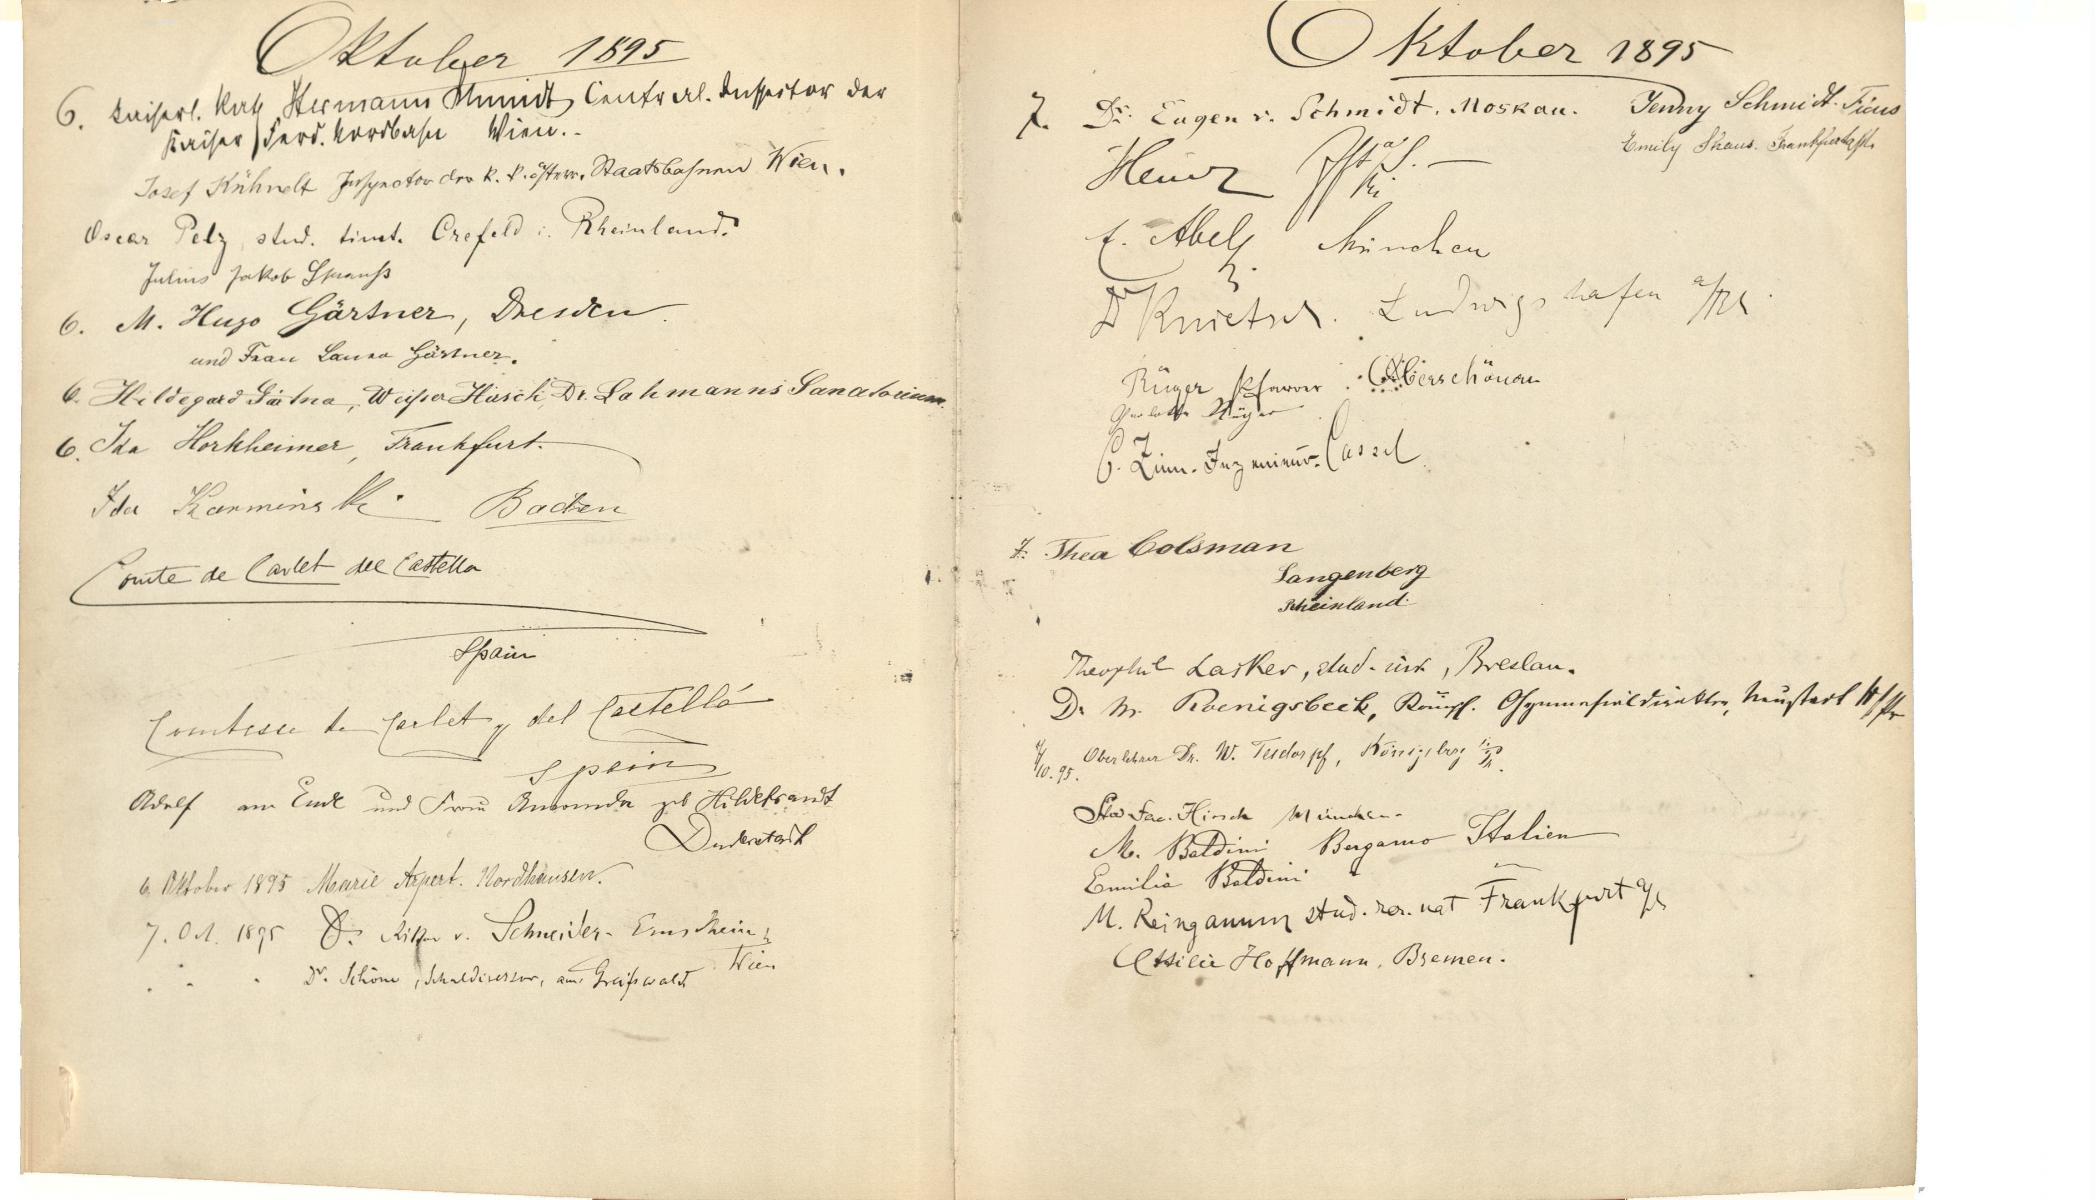 Oktober 1895
6. Kaiserl. Rath Hermann Schmidt, Central-Inspector der
Kaiser Ferd. Nordbahn Wien.-
Josef Kühnelt Inspector der k. k. österr. Staatsbahnen Wien.
Oscar Pelz, stud. Crefeld i. Rheinland.
Julius Jakob Strauß
6. M. Hugo Gärtner, Dresden
und Frau Laura Gärtner.
6. Hildegard, Weißer Hirsch, Dr. Lahmanns Sanatorium.
6. Ida Horkheimer, Frankfurt.
Ida Karminski Baden
Comte de Carlet del Castella
Spain
Comtesse de Carlet y del Castellá
Spain
Adolf am Ende und Frau geb Hildebrandt
Duderstadt
6. Oktober 1895 Marie Nordhausen.
7. Oct. 1895 Dr. Ritter v. Schneider-Ernstheim,
Wien
" " " Dr. Schöne, Schuldirector, aus Greifswald
Oktober 1895
7. Dr. Eugen v. Schmidt. Moskau. Jenny Schmidt-
Emily Frankfurt a/M.
Abel München
Dr Knietsch. Ludwigshafen a/Rh.
Rüger Pfarrer Oberschönau
Rüger
C. Zinn. Ingenieur. Cassel
7. Thea Colsman
Langenberg
Rheinland.
Theophil Lasker, stud. Breslau.
Dr. Koenigsbeck, Königl. Gymnasialdirektor, Neustadt W/Pr
10. 95. Oberlehrer Dr. W. Tesdorpf, Königsberg i/Pr.
Hirsch München
M. Baldini Bergamo Italien
Emilia Baldini
M. Reinganum stud. rer. nat Frankfurt a/M
Ottilie Hoffmann, Bremen.